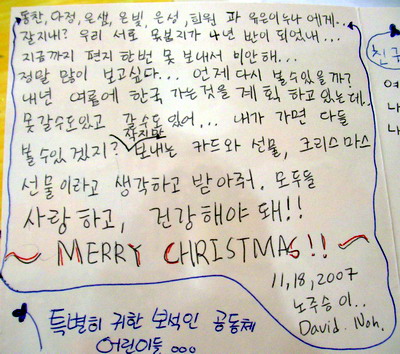 동찬, 다정, 은샘, 은빛, 은성, 희원 과 유은이 누나 에게..
잘지내? 우리 서로 못본지가 4년 반이 되었내...
지금까지 편지 한번 못 보내서 미안해...
정말 많이 보고싶다... 언제 다시 볼수 있을까?
내년 여름에 한국 가는것을 계획 하고 있는데..
못갈수도있고 갈수도 있어... 내가 가면 다들
볼수있겠지? 작지만 보내는 카드와 선물, 크리스마스
선물이라고 생각하고 받아줘. 모두들
사랑하고, 건강해야 돼!!
~ MERRY CHRISTMAS!! ~
11,18,2007
노주승 이..
David. Noh.
특별히 귀한 보석인 공동체
어린이들 ...
친구